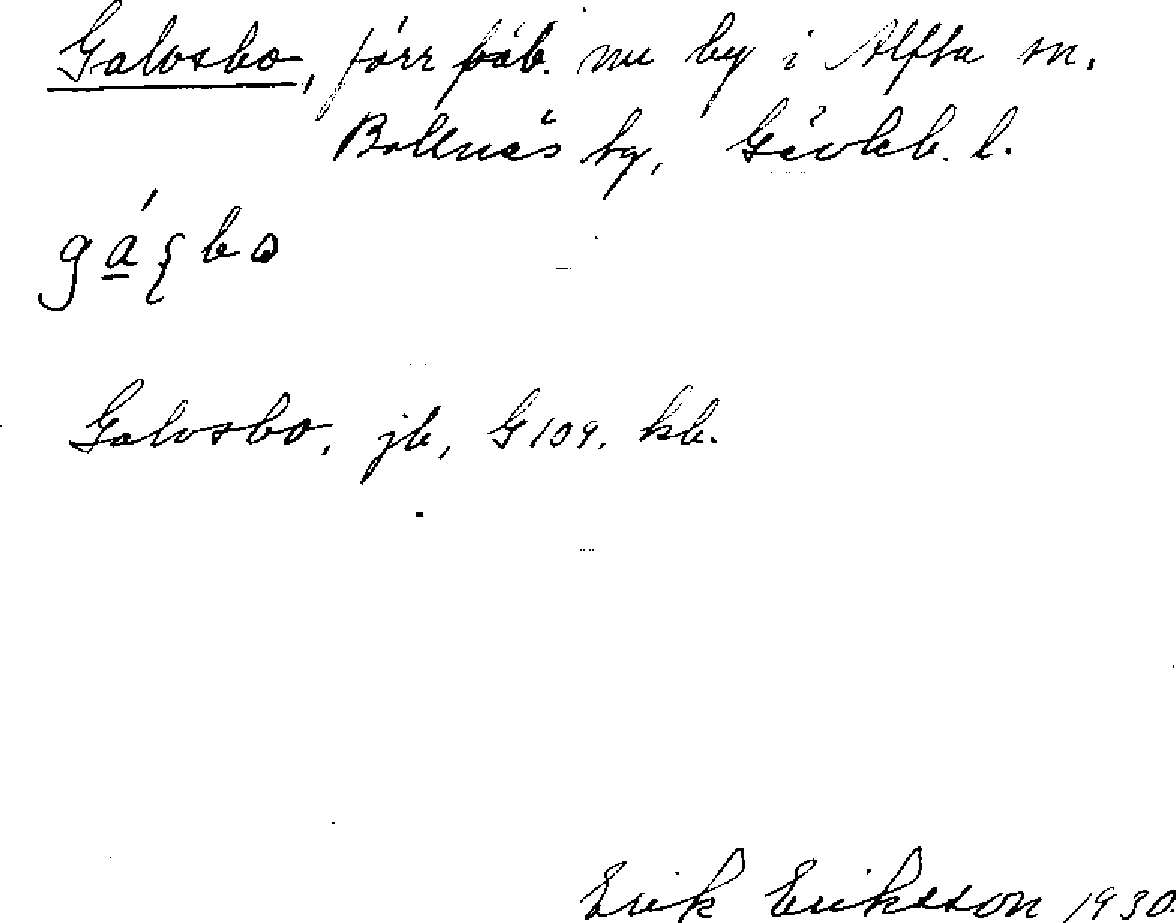 Galvsbo, förr fäb. nu by i Alfta sn.
Bollnäs tg, Gävleb. l.
gá̱ʂbo
Galvsbo, jb, G109. kb.
Erik Eriksson 1930